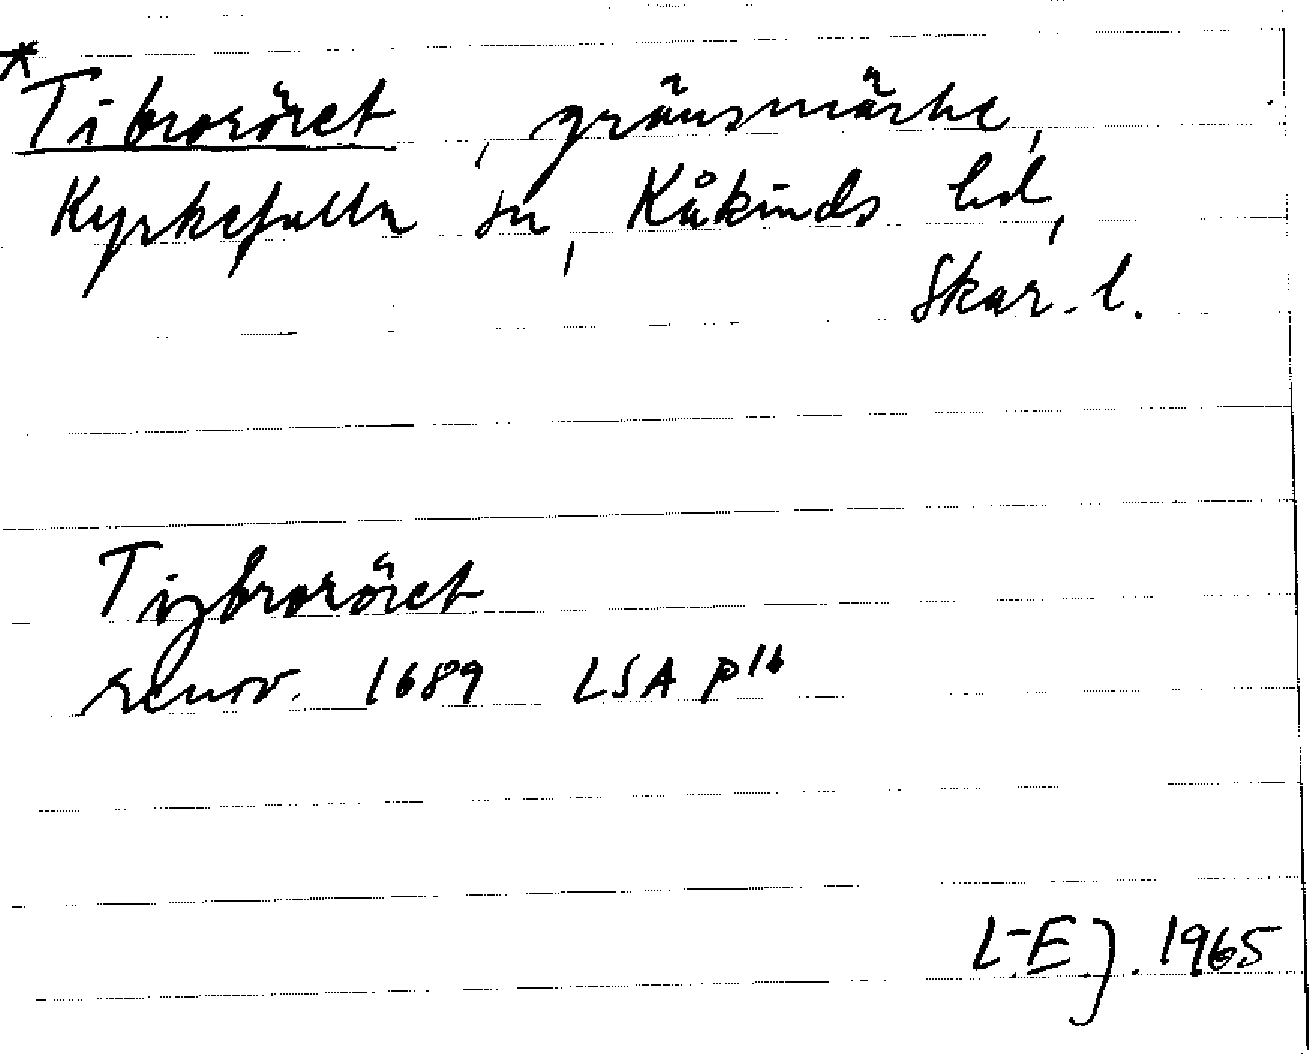 * Tibroröret, gränsmärke,
Kyrkefalla sn, Kåkinds hd,
Skar. l.
Tijbroröret
renov. 1689 LSA p16
L-E J. 1965